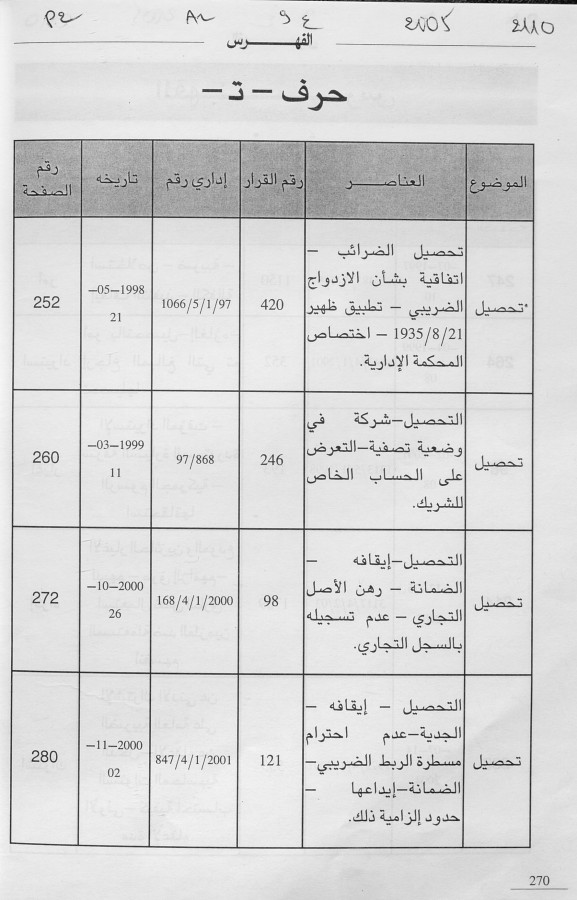 P2 A2 9 ع 2005 2110
الفهـــــرس
حرف - ت -
الموضوع العناصـــر رقم القرار إداري رقم تاريخه رقم الصفحة
تحصيل الضرائب –
اتفاقية بشأن الازدواج
*تحصيل الضريبي – تطبيق ظهير 420 1066/5/1/97 1998–05–21 252
1935/8/21 – اختصاص
المحكمة الإدارية.
التحصيل–شركة في
وضعية تصفية–التعرض
تحصيل على الحساب الخاص 246 97/868 1999–03–11 260
للشريك.
التحصيل–إيقافه –
الضمانة – رهن الأصل
تحصيل التجاري – عدم تسجيله 98 168/4/1/2000 2000–10–26 272
بالسجل التجاري.
التحصيل – إيقافه –
الجدية–عدم احترام
تحصيل مسطرة الربط الضريبي– 121 847/4/1/2001 2000–11–02 280
الضمانة–إيداعها –
حدود إلزامية ذلك.
270